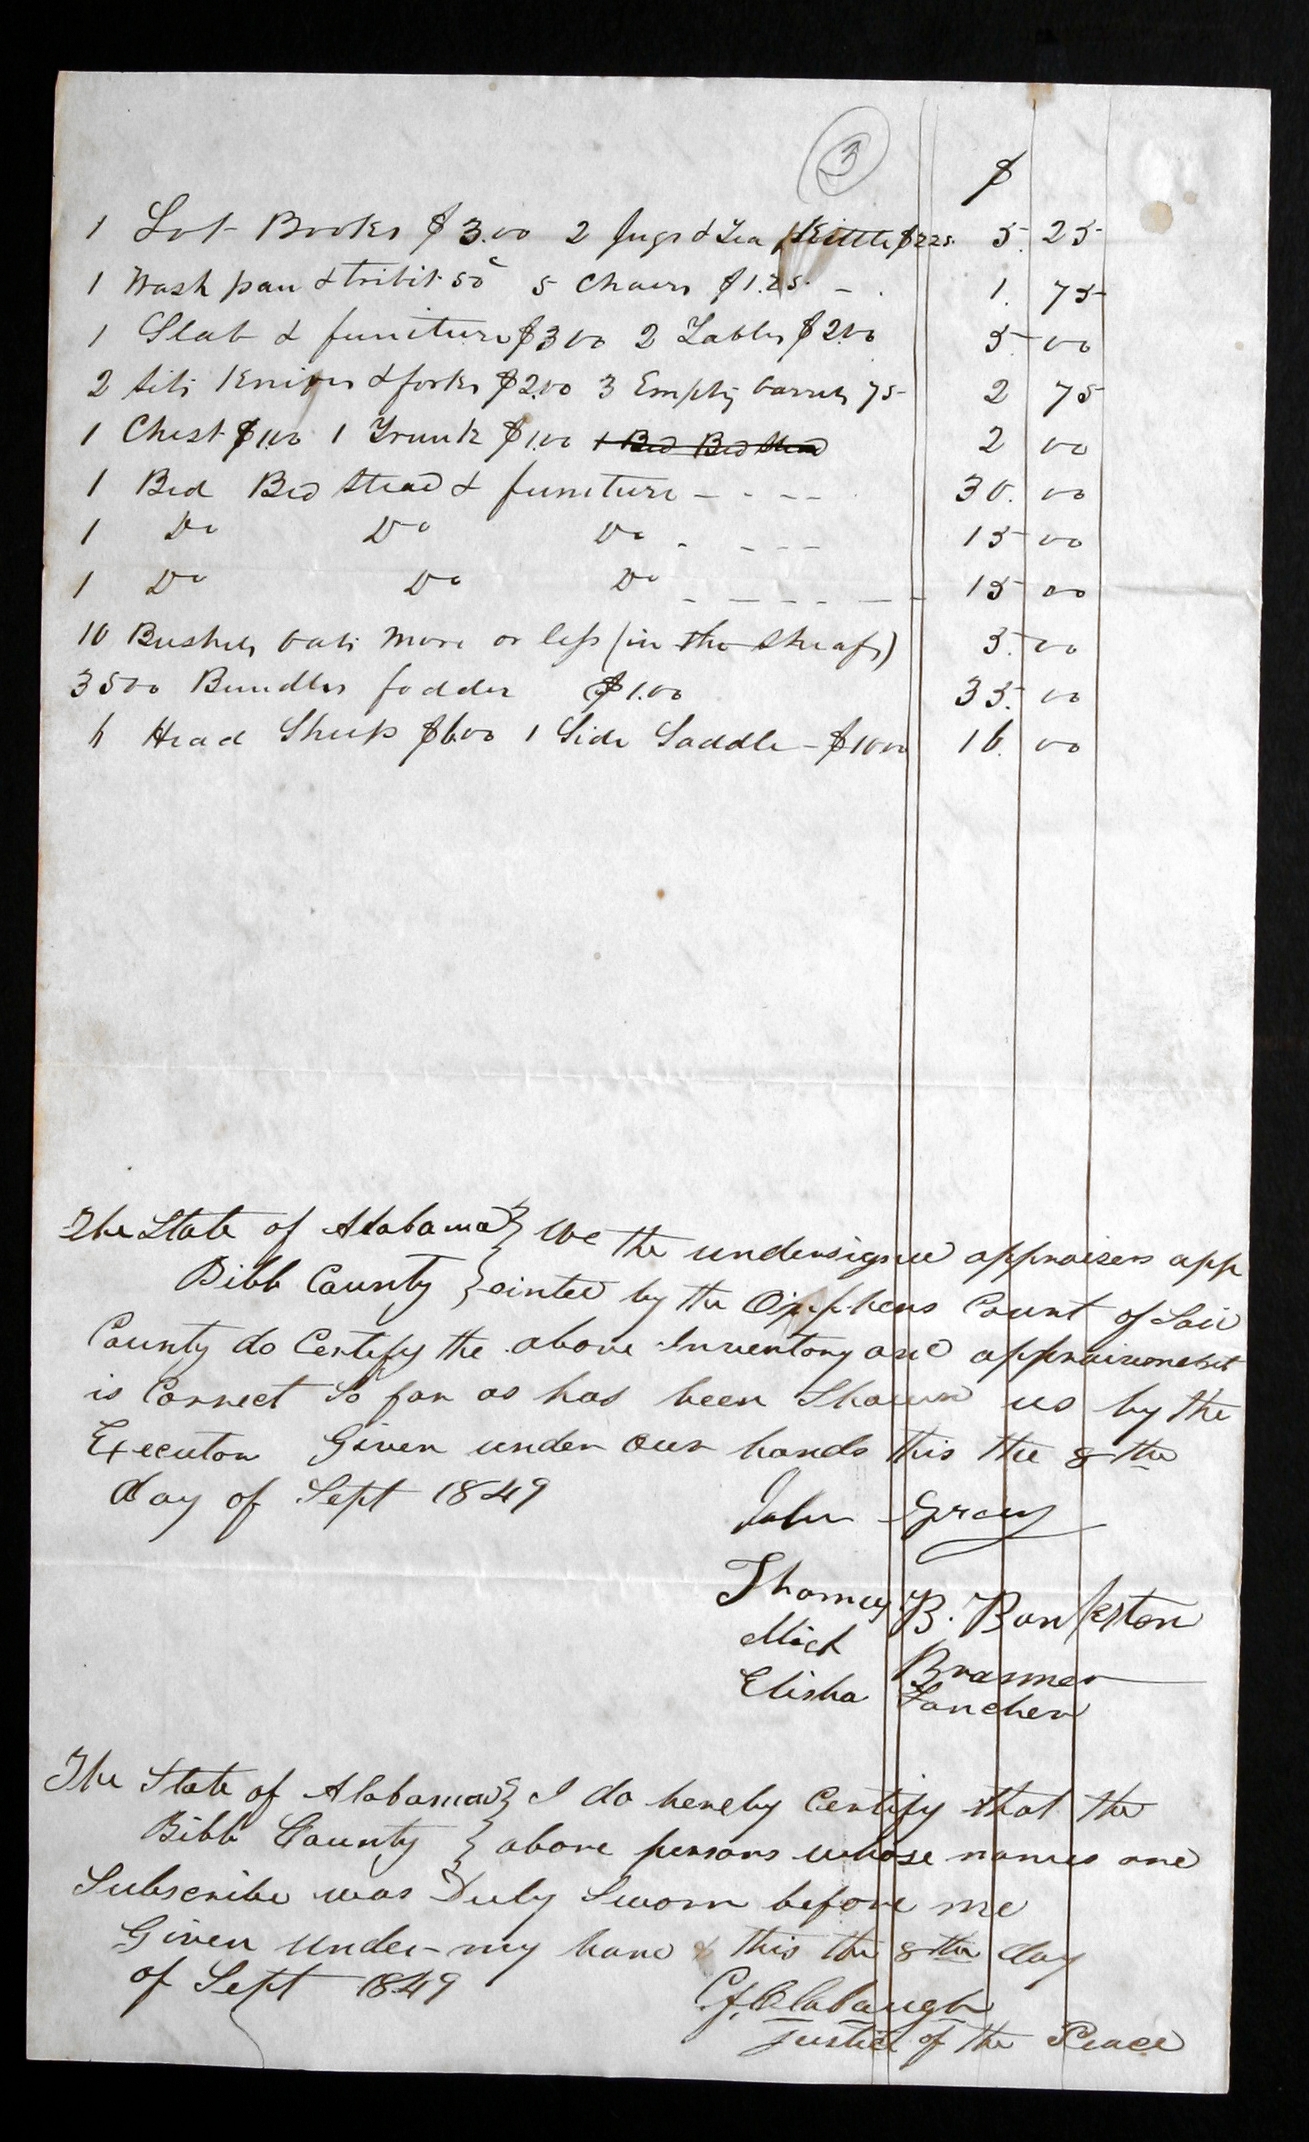 3
$
1 Lot Books $3.00 2 Jugs & Tea Kittle $2.25 5. 25
1 Wash pan & tribit 50c 5 Chairs $1.25 - . 1. 75
1 Slab & funiture $3.00 2 Tables $2.00 5. 00
2 Sets Knives & forks $2.00 3 Empty barrels 75 2 75
1 Chest $1.00 1 Trunk $1.00 1 Bed Bed Stead 2 00
1 Bed Bed Stead & funiture - - - - 30. 00
1 Do Do Do - - - - 15 00
1 Do Do Do - - - - - - 15 00
10 Bushels oats more or less (in the Sheafs) 5. 00
3500 Bundles fodder $1.00 35. 00
6 Head Sheep $6.00 1 Side Saddle - $10.00 16. 00
The State of Alabama } We the undersigned appraisers app
Bibb County } ointed by the Orpphens Court of Said
County do Certify the above Inventory and appraizement
is Correct So far as has been Shawn us by the
Executor Given under our hands this the 8th
day of Sept 1849
John Gray
Thomas B. Bankston
Mich Brasmer
Elisha Fancher
The State of Alabama } I do hereby Certify that the
Bibb County } above persons whose names are
Subscribe was Duly Sworn before me
Given under my hand & this the 8th day
of Sept 1849
C. J. Clabaugh
Justice of the Peace